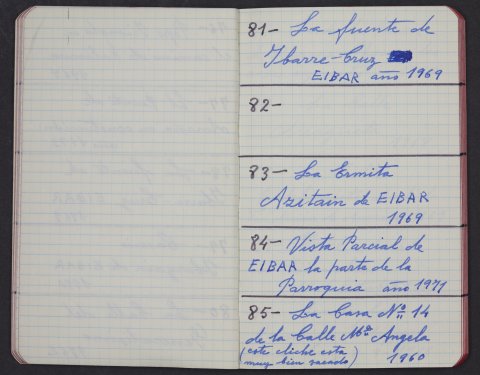 81- La fuente de
Ibarre-Cruz
EIBAR año 1969
82-
83- La Ermita
Azitain de EIBAR
1969
84- Vista Parcial de
EIBAA la parte de la
Parroquia año 1971
85- La Casa Nº 14
de la Calle Mª Angela
(este cliche esta
muy bien sacado) 1960